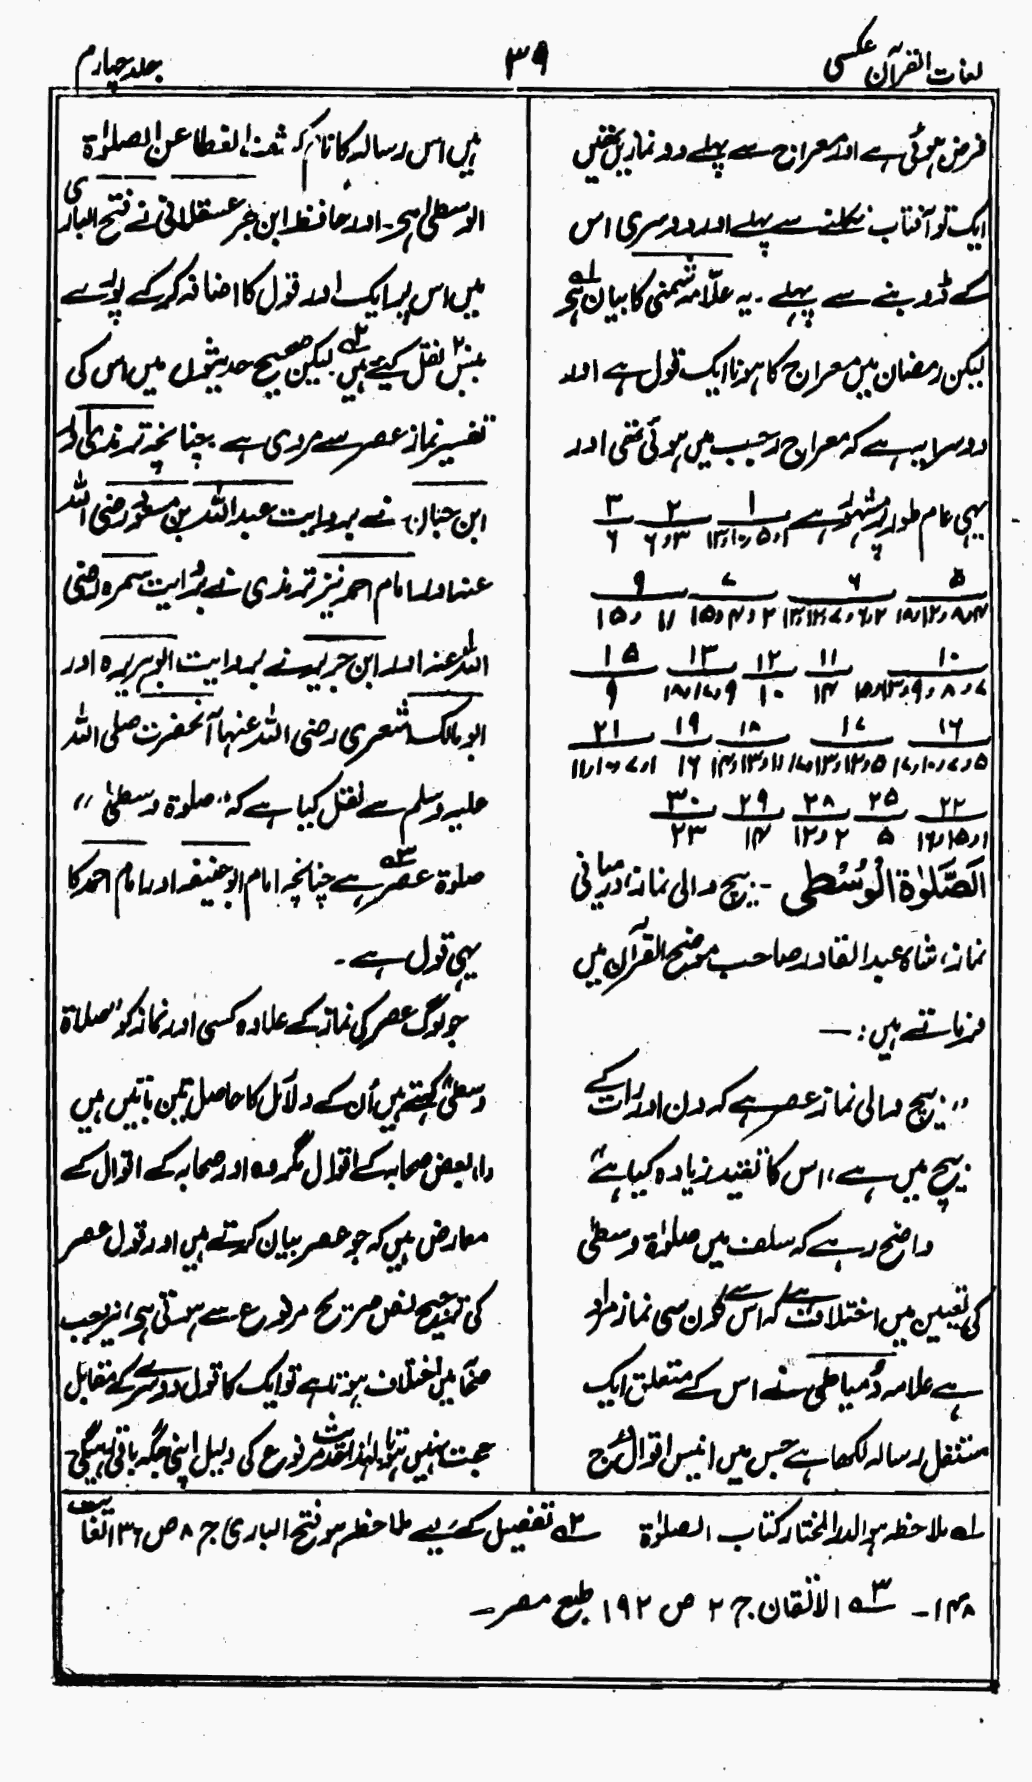 لغات القرآن عکسی
۳۹
جلد چہارم
فرض ہوئی ہے اور معراج سے پہلے دو نمازیں تھیں
ایک تو آفتاب نکلنے سے پہلے اور دوسری اس
کے ڈوبنے سے پہلے۔ یہ علّامہ شمنی کا بیان ہے ۱؎
لیکن رمضان میں معراج کا ہونا ایک قول ہے اور
دوسرا یہ ہے کہ معراج رجب میں ہوئی تھی اور
یہی عام طور پر مشہور ہے ۱ ۲ ۳
۱و۵و۱۰و۱۳ ۳و۶ ۶
۵ ۶ ۷ ۹
۴و۸و۱۲و۱۸ ۲و۶و۷و۱۲و۱۳ ۲و۴و۱۵ ۱۱ و۱۵
۱۰ ۱۱ ۱۲ ۱۳ ۱۵
۷و۸و۹و۱۳و۱۵ ۱۴ ۱۰ ۹و۱۷و۱۸ ۹
۱۶ ۱۷ ۱۸ ۱۹ ۲۱
۵و۷و۱۰و۱۷ ۵و۱۲و۱۳و۱۷ ۱۱و۱۳و۱۴ ۱۶ ۱و۷و۱۰و۱۱
۲۲ ۲۵ ۲۸ ۲۹ ۳۰
۱و۱۵و۱۶ ۵ ۲ و۱۲ ۱۴ ۲۳
الَصَّلوٰةَ الْوُسْطٰی ۔ بیچ والی نماز، درمیانی
نماز، شاہ عبد القادر صاحب موضح القرآن میں
فرماتے ہیں: —
"بیچ والی نماز عصر ہے کہ دن اور رات کے
بیچ میں ہے، اس کا تقید زیادہ کیا ہے"
واضح رہے کہ سلف میں صلوٰۃ وسطٰی
کی تعیین میں اختلاف ہے کہ اس سے کون سی نماز مراد
ہے علامہ دُمیاطی نے اس کے متعلق ایک
مستقل رسالہ لکھا ہے جس میں انیس اقوال درج
ہیں اس رسالہ کا نام کشف الغطا عن الصلوٰۃ
الوسطٰی ہے۔ اور حافظ ابن حجر عسقلانی نے فتح الباری
میں اس پر ایک اور قول کا اضافہ کرکے پورے
بیس ۲۰ نقل کیے ہیں ۲؎ لیکن صحیح حدیثوں میں اس کی
تفسیر نماز عصر سے مروی ہے۔ چنانچہ ترمذی اور
ابن حبان نے بروایت عبد اللہ بن مسعود رضی اللہ
عنہ اور امام احمد نیز ترمذی نے بروایت سمرہ رضی
اللہ عنہ اور ابن جریر نے بروایت ابو ہریرہ اور
ابو مالک اشعری رضی اللہ عنہما آنحضرت صلی اللہ
علیہ وسلم سے نقل کیا ہے کہ "صلوٰۃ وسطٰی"
صلوٰۃ عصر ہے ۳؎ چنانچہ امام ابو حنیفہ اور امام احمد کا
یہی قول ہے۔
جو لوگ عصر کی نماز کے علاوہ کسی اور نماز کو "صلاۃ
وسطٰی" کہتے ہیں اُن کے دلائل کا حاصل تین باتیں ہیں
(۱) بعض صحابہ کے اقوال مگر وہ اور صحابہ کے اقوال کے
معارض ہیں کہ جو عصر بیان کرتے ہیں اور قول عصر
کی ترجیح نص صریح مرفوع سے ہوتی ہے، نیز جب
صحابہ میں اختلاف ہوتا ہے تو ایک کا قول دوسرے کے مقابل
حجت نہیں ہوتا، لہٰذا حدیث مرفوع کی دلیل اپنی جگہ باقی رہیگی
۱؎ ملاحظہ ہو الدر المختار کتاب الصلوٰۃ ۲؎ تفصیل کے لیے ملاحظہ ہو فتح الباری ج ۸ ص ۱۳۶ لغایت
۱۴۸۔ ۳؎ الاتقان ج ۲ ص ۱۹۲ طبع مصر۔